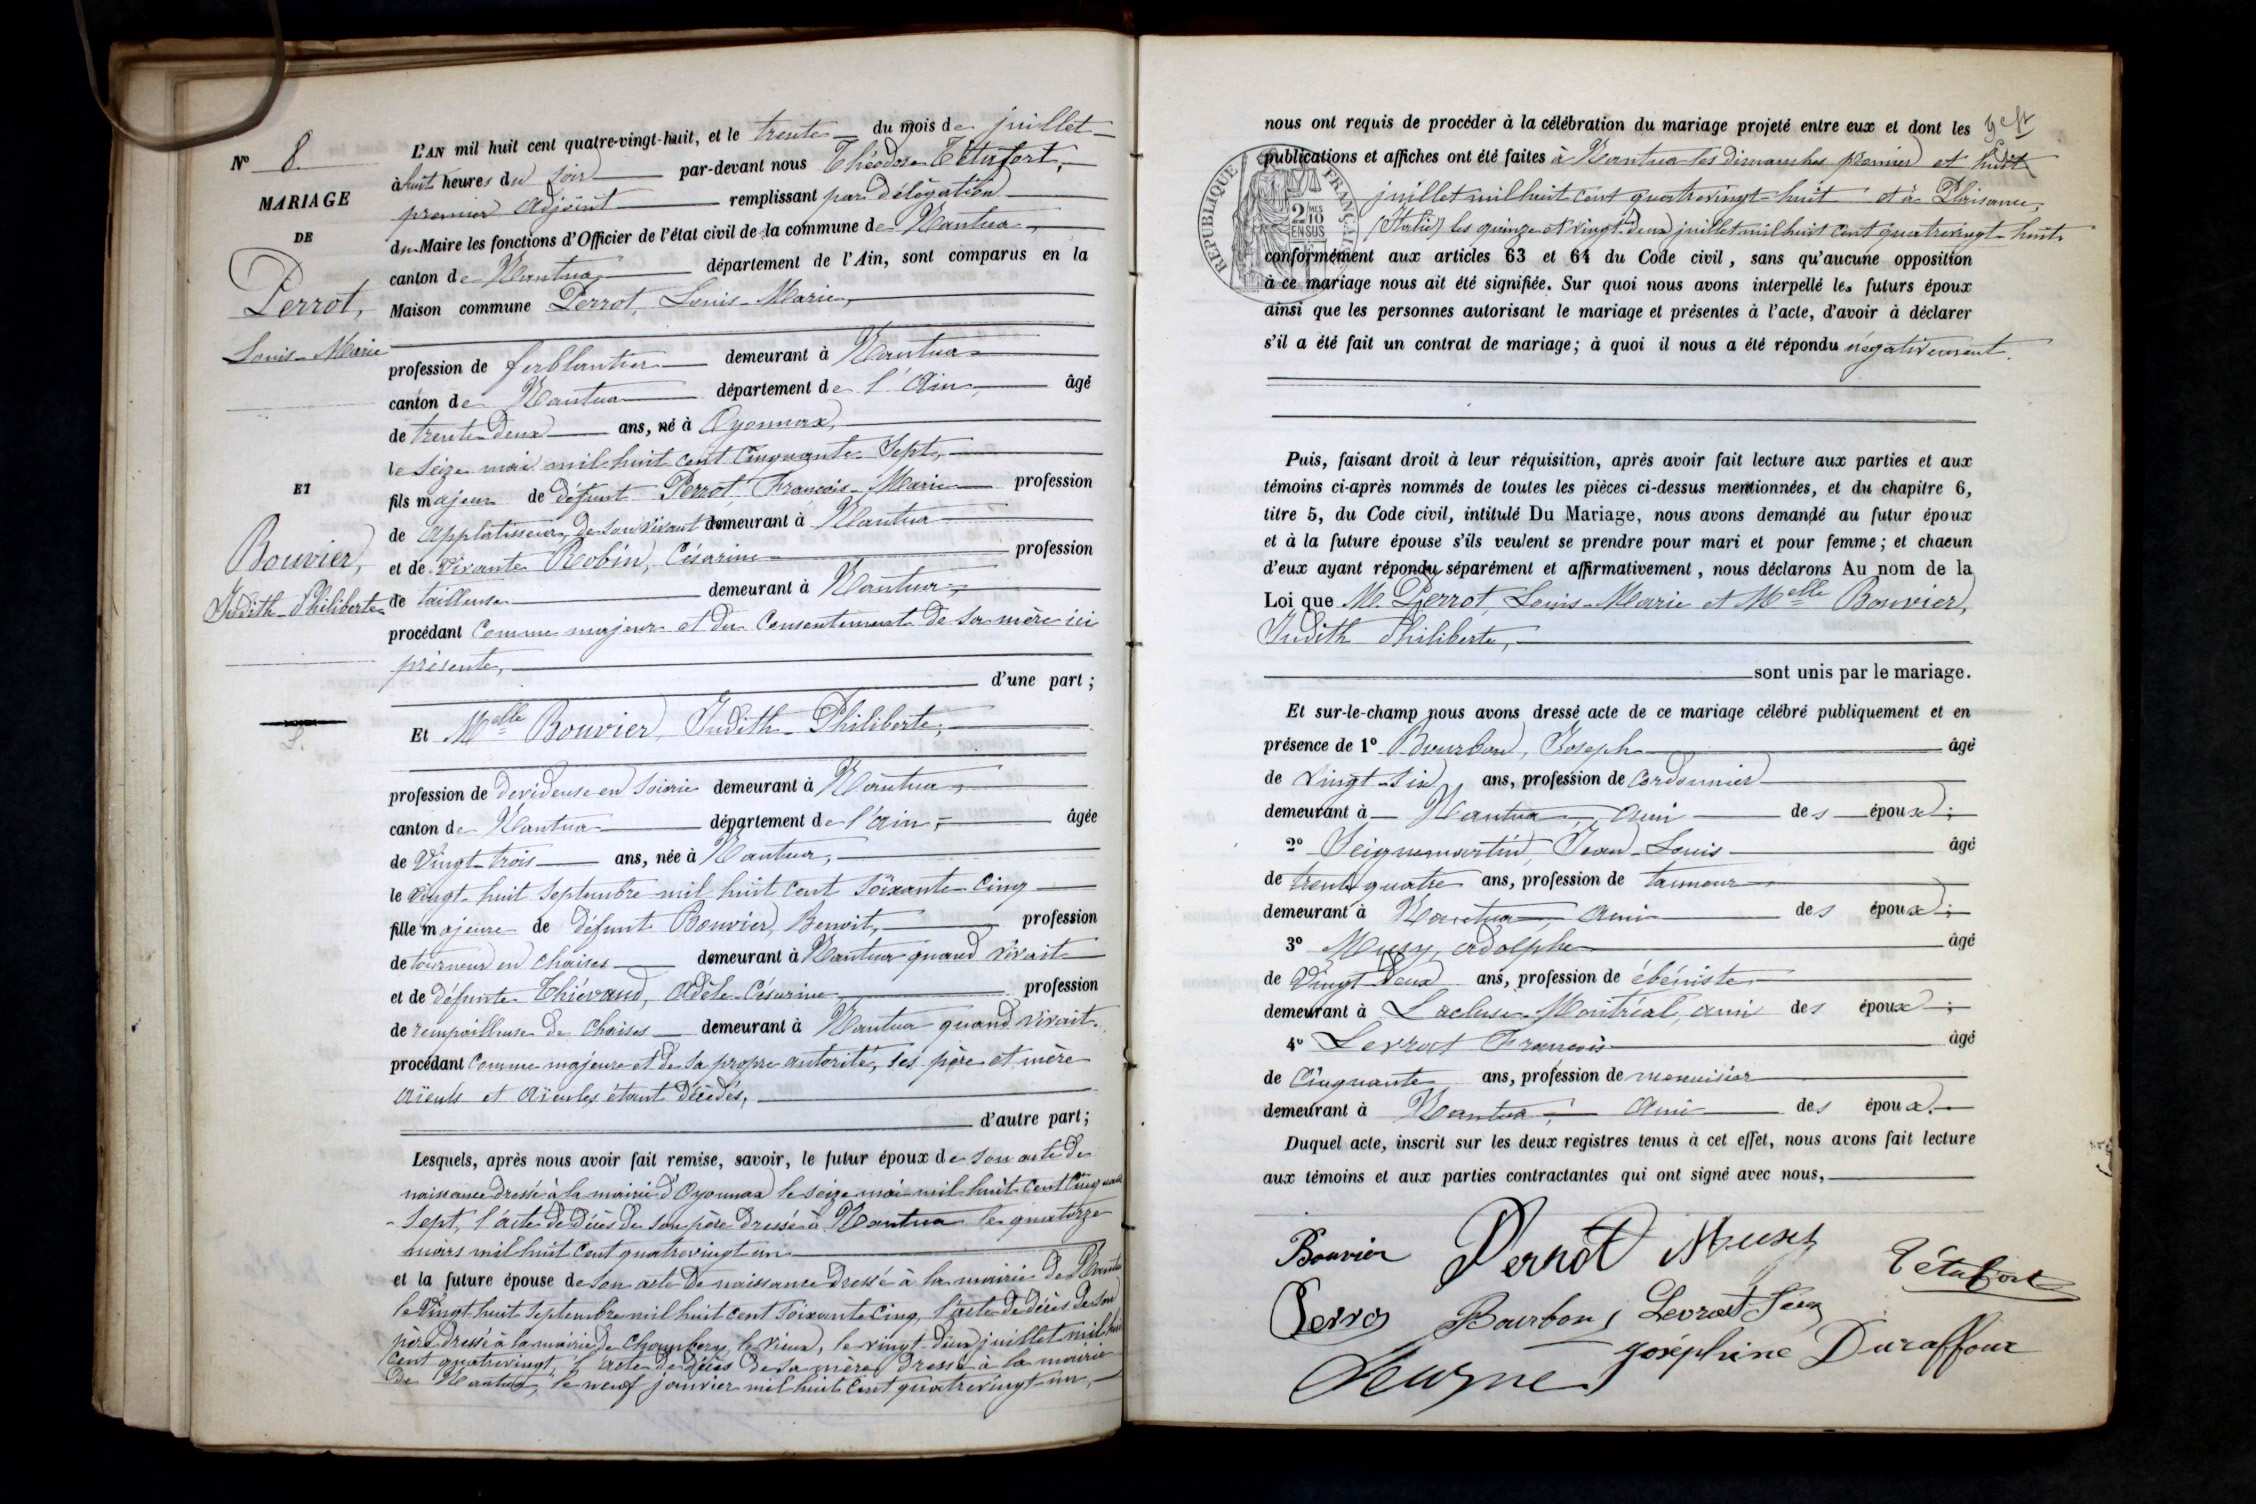 N° 8.
MARIAGE
DE
Perrot,
Louis-Marie
ET
Bouvier,
Judith-Philiberte
L'AN mil huit cent quatre-vingt-huit, et le trente du mois de juillet
à huit heures du soir par-devant nous Théodose Tétafort,
premier adjoint remplissant par délégation
du Maire les fonctions d'Officier de l'état civil de la commune de Nantua,
canton de Nantua, département de l'Ain, sont comparus en la
Maison commune Perrot, Louis-Marie,
profession de ferblantier demeurant à Nantua
canton de Nantua département de l'Ain, âgé
de trente deux ans, né à Oyonnax,
le seize mai mil huit cent cinquante sept,
fils majeur de défunt Perrot François-Marie profession
de applatisseur, de son vivant demeurant à Nantua
et de vivante Robin, Césarine profession
de tailleuse demeurant à Nantua,
procédant comme majeur et du consentement de sa mère ici
présente,
d'une part ;
Et Melle Bouvier, Judith-Philiberte,
profession de dévideuse en soierie demeurant à Nantua,
canton de Nantua département de l'Ain, âgée
de vingt-trois ans, née à Nantua,
le vingt-huit septembre mil huit cent soixante-cinq
fille majeure de défunt Bouvier, Benoit, profession
de tourneur en chaises demeurant à Nantua quand vivait
et de défunte Thiévaud, Adèle-Césarine profession
de rempailleuse de chaises demeurant à Nantua quand vivait,
procédant comme majeure et de sa propre autorité, ses père et mère
aïeuls et aïeules étant décédés,
d'autre part ;
Lesquels, après nous avoir fait remise, savoir, le futur époux de son acte de
naissance dressé à la mairie d'Oyonnax le seize mai mil huit cent cinquante
-sept, l'acte de décès de son père dressé à Nantua le quatorze
mars mil huit cent quatrevingt un
et la future épouse de son acte de naissance dressé à la mairie de Nantua
le vingt huit septembre mil huit cent soixante cinq, l'acte de décès de son
père dressé à la mairie de Chambéry le vieux, le vingt-deux juillet mil huit
cent quatrevingt, l'acte de décès de sa mère dressé à la mairie
de Nantua, le neuf janvier mil huit cent quatrevingt-un,
nous ont requis de procéder à la célébration du mariage projeté entre eux et dont les
publications et affiches ont été faites à Nantua les dimanches premier et huit
juillet mil huit cent quatrevingt-huit et à Plaisance,
(Italie) les quinze et vingt-deux juillet mil huit cent quatrevingt-huit
conformément aux articles 63 et 64 du Code civil, sans qu'aucune opposition
à ce mariage nous ait été signifiée. Sur quoi nous avons interpellé les futurs époux
ainsi que les personnes autorisant le mariage et présentes à l'acte, d'avoir à déclarer
s'il a été fait un contrat de mariage ; à quoi il nous a été répondu négativement.
RÉPUBLIQUE FRANÇAISE
2 MES 10 EN SUS
Puis, faisant droit à leur réquisition, après avoir fait lecture aux parties et aux
témoins ci-après nommés de toutes les pièces ci-dessus mentionnées, et du chapitre 6,
titre 5, du Code civil, intitulé Du Mariage, nous avons demandé au futur époux
et à la future épouse s'ils veulent se prendre pour mari et pour femme ; et chacun
d'eux ayant répondu séparément et affirmativement, nous déclarons Au nom de la
Loi que M. Perrot, Louis-Marie et Melle Bouvier,
Judith Philiberte,
sont unis par le mariage.
Et sur-le-champ nous avons dressé acte de ce mariage célébré publiquement et en
présence de 1° Bourbon, Joseph âgé
de vingt-six ans, profession de cordonnier
demeurant à Nantua, ami des époux ;
2° Seignemartin, Jean-Louis âgé
de trente quatre ans, profession de tanneur
demeurant à Nantua, ami des époux ;
3° Musy, Adolphe âgé
de vingt-deux ans, profession de ébéniste
demeurant à Lacluse-Montréal, ami des époux ;
4° Levrat François âgé
de cinquante ans, profession de menuisier
demeurant à Nantua, ami des époux.
Duquel acte, inscrit sur les deux registres tenus à cet effet, nous avons fait lecture
aux témoins et aux parties contractantes qui ont signé avec nous,
Bouvier Perrot Musy Tétafort
Perrot Bourbon J Levrat
Joséphine Duraffour